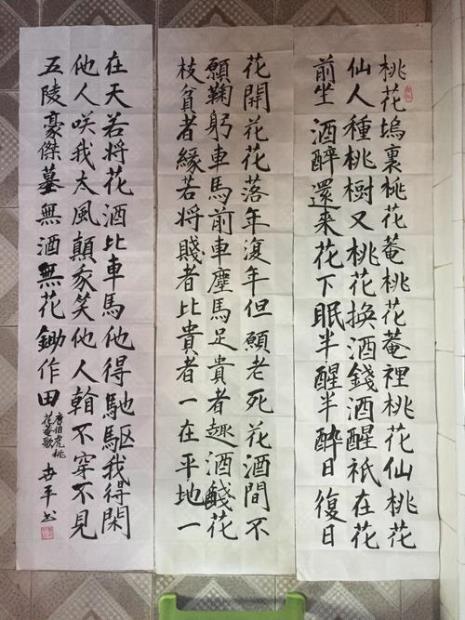 桃花塢裏桃花菴桃花菴裡桃花仙桃花
仙人種桃樹又桃花换酒錢酒醒祇在花
前坐酒醉還来花下眠半醒半醉日復日
花開花花落年復年但願老死花酒間不
願鞠躬車馬前車塵馬足貴者趣酒醆花
枝貧者緣若将賤者比貴者一在平地一
在天若将花酒比車馬他得馳駆我得閑
他人咲我太風顛我笑他人翰不穿不見
五陵豪傑墓無酒無花鋤作田
唐伯虎桃
花菴歌
平书